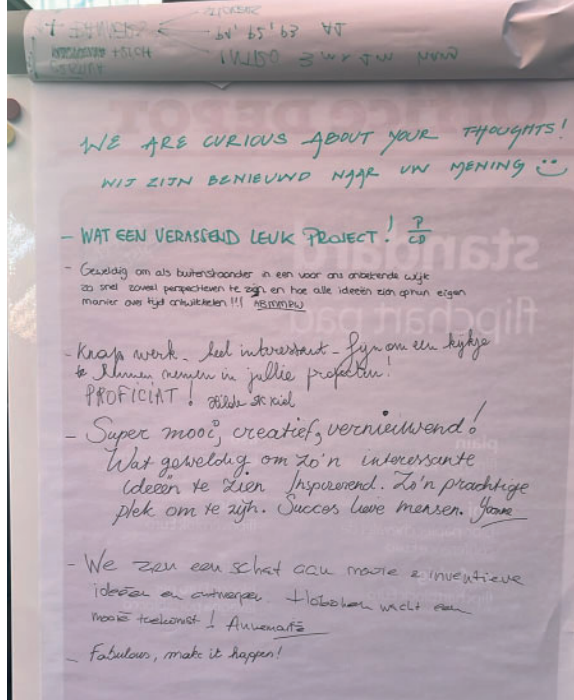 WE ARE CURIOUS ABOUT YOUR THOUGHTS!
WIJ ZIJN BENIEUWD NAAR UW MENING
- WAT EEN VERASSEND LEUK PROJECT! P/CD
- Geweldig om als buitenstaander in een voor ons onbekende wijk
zo snel zoveel perspectieven te zijn en hoe alle ideeën zich op hun eigen
manier over tijd ontwikkelen!!! ABMMPW
- Knap werk - heel interessant - fijn om een kijkje
te kunnen nemen in jullie projecten!
PROFICIAT! Hilde
- Super mooi, creatief, vernieuwend!
Wat geweldig om zo'n interessante
ideeën te zien Inspirerend. Zo'n prachtige
plek om te zijn. Succes lieve mensen. Yvonne
- We zien een schat aan mooie & inventieve
ideeën en ontwerpen. Hoboken wacht een
mooie toekomst! Annemarie
- Fabulous, make it happen!
INTRO
P1, P2, P3
Office DEPOT
standard
flipchart pad
plain